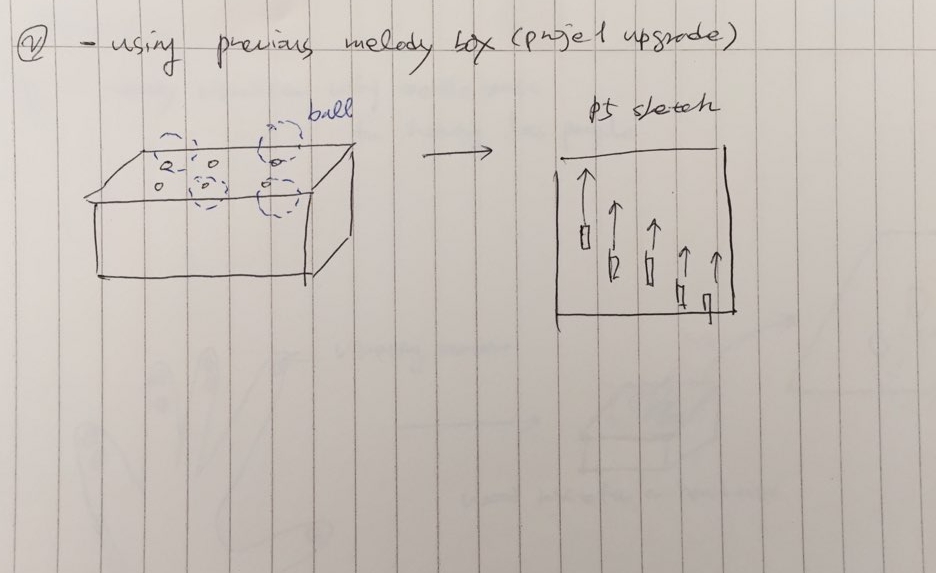 ② - using previous melody box (projet upgrade)
ball
p5 sketch